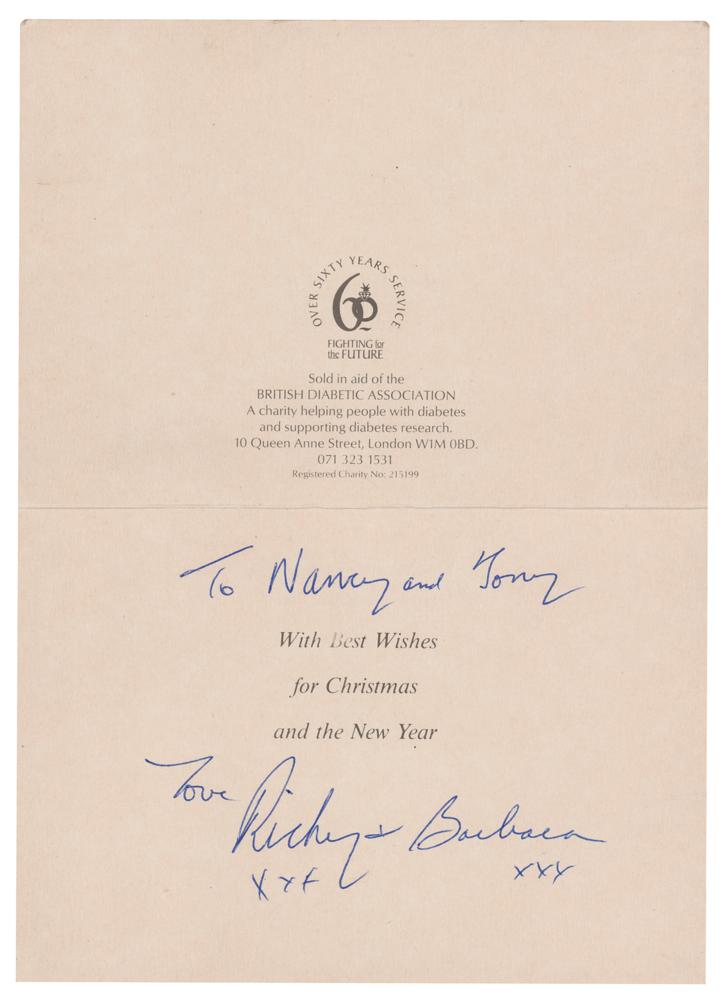 OVER SIXTY YEARS SERVICE
60
FIGHTING for
the FUTURE
Sold in aid of the
BRITISH DIABETIC ASSOCIATION
A charity helping people with diabetes
and supporting diabetes research.
10 Queen Anne Street, London W1M 0BD.
071 323 1531
Registered Charity No: 215199
To Nancy and Tony
With Best Wishes
for Christmas
and the New Year
Love
Richy + Barbara
xxx xxx